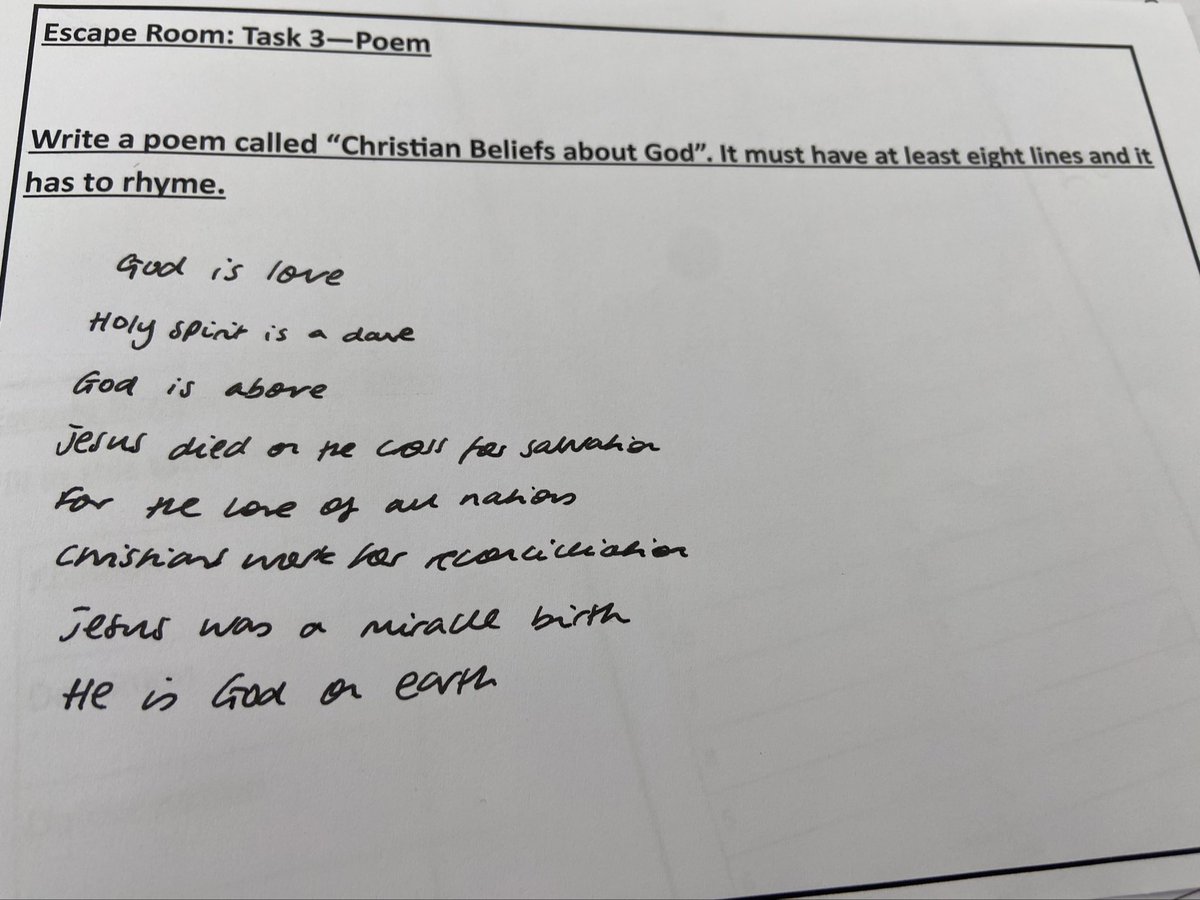 Escape Room: Task 3—Poem
Write a poem called “Christian Beliefs about God”. It must have at least eight lines and it
has to rhyme.
God is love
Holy spirit is a dove
God is above
Jesus died on the cross for salvation
For the love of all nations
Christians work for reconcilliation
Jesus was a miracle birth
He is God on earth